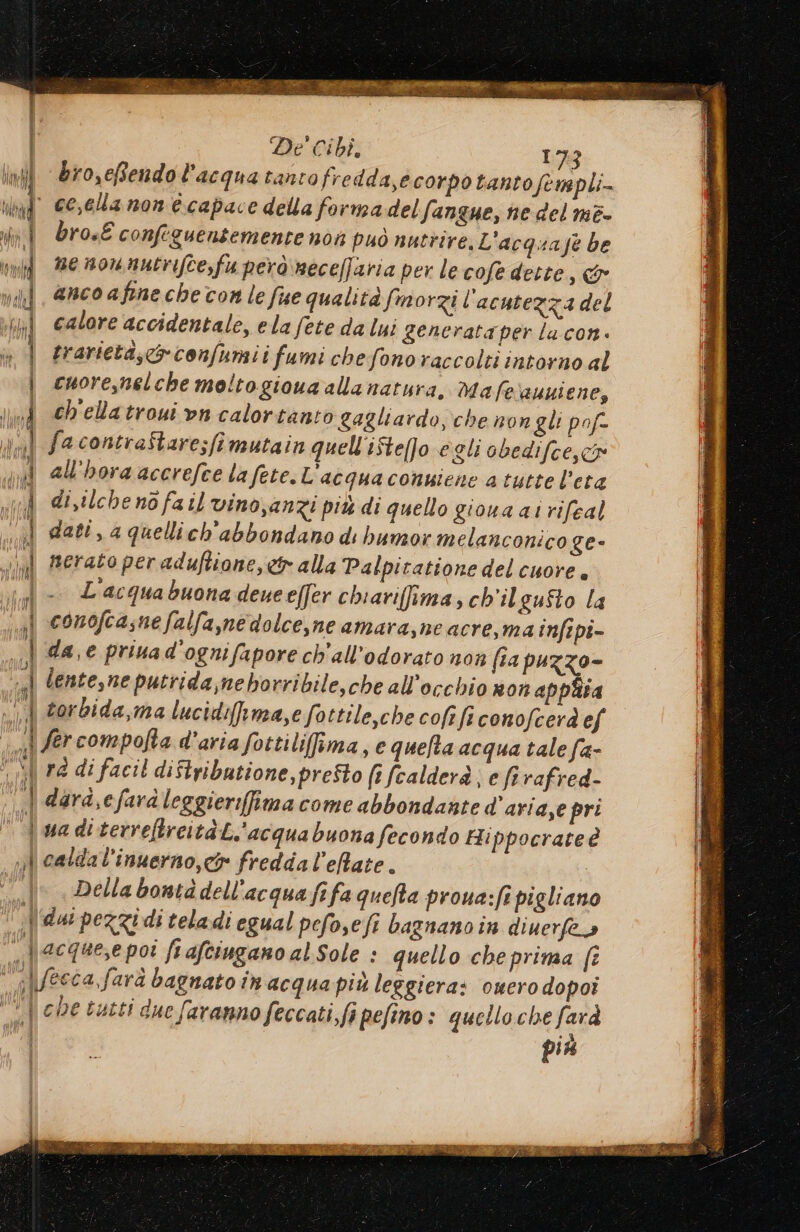 De' Cibi. 173
bro, eſſendo l'acqua tanto fredda, e corpo tanto ſempli-
ce, ella non è capace della forma del ſangue, ne del mē-
bro. E conſeguentemente non può nutrire. L'acqua ſe be
ne non nutriſce, fu però neceſſaria per le coſe dette, &
anco a fine che con le ſue qualità ſmorzi l'acutezza del
calore accidentale, e la ſete da lui generata per la con-
trarietà, & conſumi i fumi che ſono raccolti intorno al
cuore, nel che molto gioua alla natura. Ma ſe auuiene,
ch'ella troui vn calor tanto gagliardo, che non gli poſ-
ſa contraſtare; ſi muta in quell'iſteſſo e gli obediſce, &
all'hora accreſce la ſete. L'acqua conuiene a tutte l'eta
di, ilche nō fa il vino, anzi più di quello gioua ai riſcal
dati, a quelli ch'abbondano di humor melanconico ge-
nerato per aduſtione, & alla Palpitatione del cuore.
L'acqua buona deue eſſer chiariſſima, ch'il guſto la
conoſca; ne ſalſa, ne dolce, ne amara, ne acre, ma inſipi-
da, e priua d'ogni ſapore ch'all'odorato non ſia puzzo-
lente, ne putrida, ne horribile, che all'occhio non appaia
torbida, ma lucidiſſima, e ſottile, che coſi ſi conoſcerà eſ
ſer compoſta d'aria ſottiliſſima, e queſta acqua tale ſa-
rà di facil diſtributione, preſto ſi ſcalderà, e ſi rafred-
darà, e ſarà leggieriſſima come abbondante d'aria, e pri
ua di terreſtreità. L'acqua buona ſecondo Hippocrate è
calda l'inuerno, & fredda l'eſtate.
Della bontà dell'acqua ſi fa queſta proua: ſi pigliano
dui pezzi di tela di egual peſo, e ſi bagnano in diuerſe
acque, e poi ſi aſciugano al Sole : quello che prima ſi
ſecca, ſarà bagnato in acqua più leggiera: ouero dopoi
che tutti due ſaranno ſeccati, ſi peſino : quello che ſarà
più